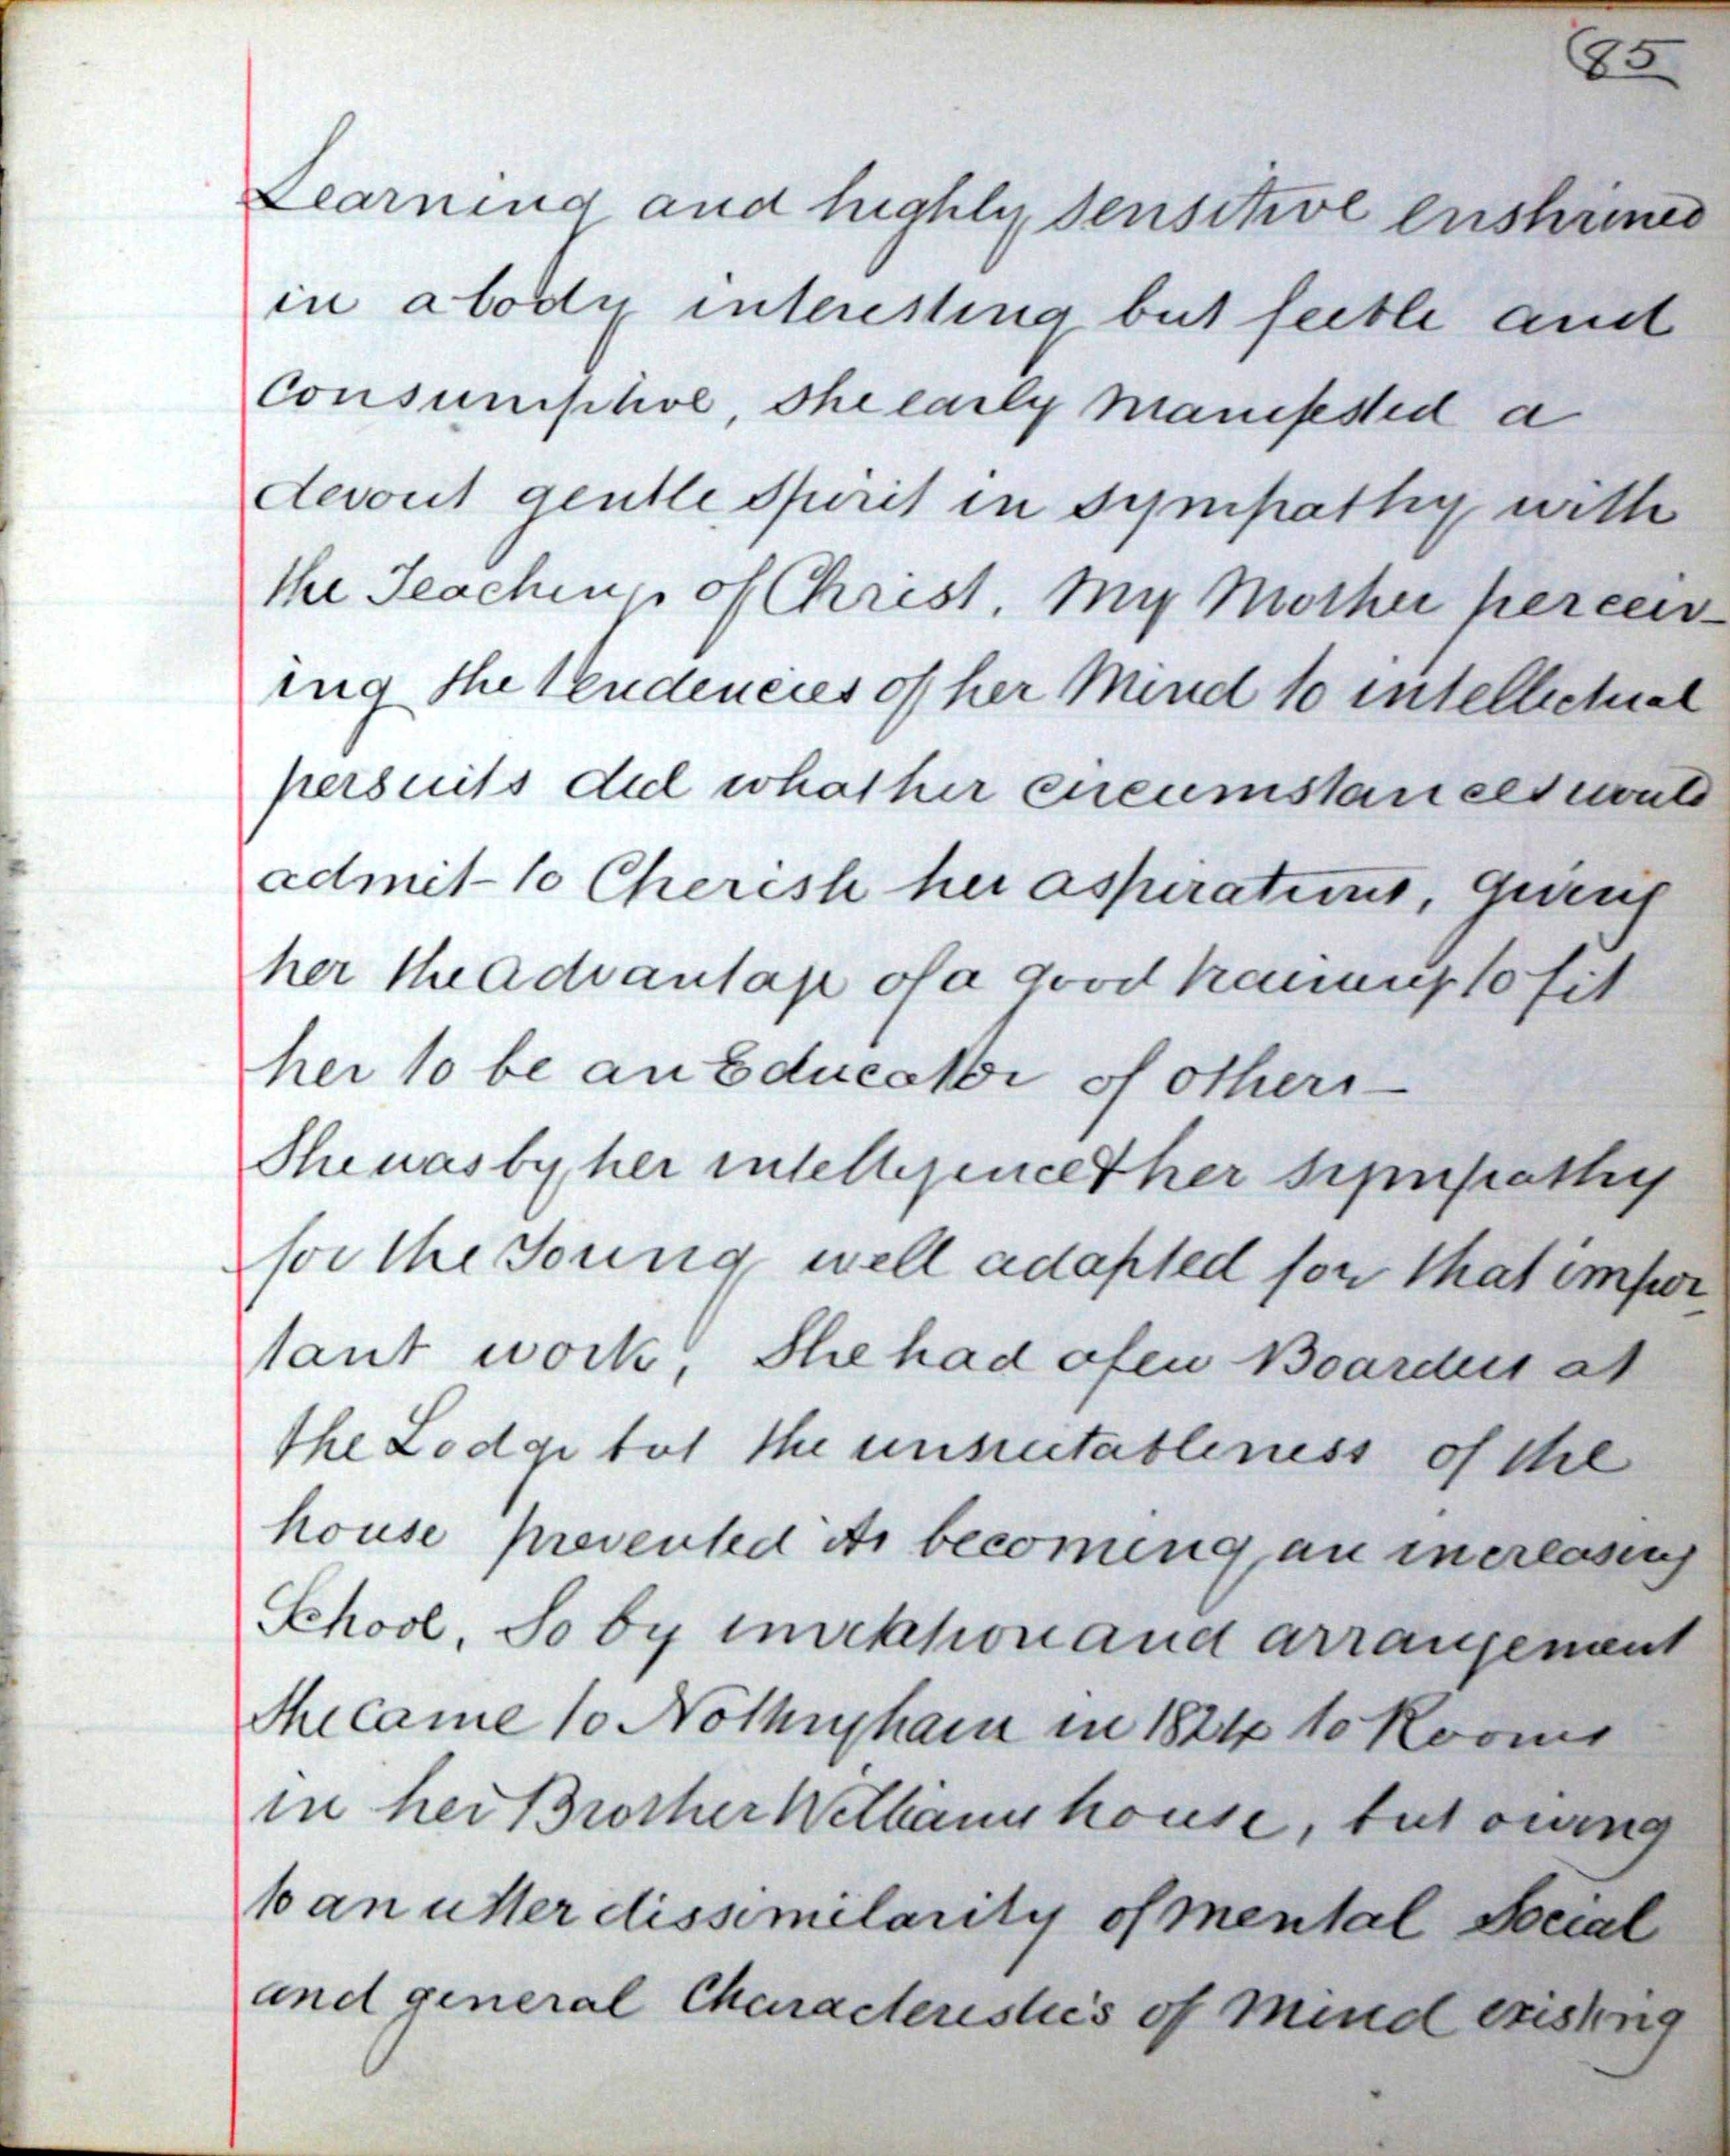 85
Learning and highly sensitive enshrined
in a body interesting but feeble and
Consumptive, she early manifested a
devout gentle spirit in sympathy with
the Teachings of Christ. My Mother perceiv-
ing the tendencies of her Mind to intellectual
persuits did what her circumstances would
admit - to Cherish her aspirations, giving
her the advantage of a good training to fit
her to be an Educator of others -
She was by her intelligence & her sympathy
for the Young well adapted for that impor-
tant work, She had a few Boarders at
the Lodge but the unsuitableness of the
house prevented its becoming an increasing
School. So by invitation and arrangement
she came to Nottingham in 1824 to Rooms
in her Brother Williams house, but owing
to an utter dissimilarity of mental Social
and general Characteristics of Mind existing